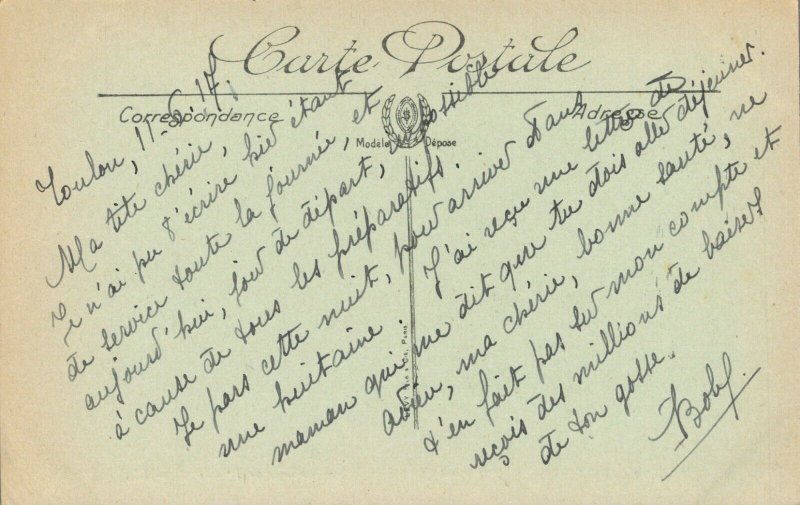 Carte Postale
Correspondance
Adresse
Modèle Déposé
Toulon, 11-6-17,
Ma tite chérie,
Je n'ai pu t'écrire hier étant
de service toute la journée et
aujourd'hui, jour de départ, impossible
à cause de tous les préparatifs.
Je pars cette nuit, pour arriver dans
une huitaine. J'ai reçu une lettre de
maman qui me dit que tu dois aller déjeuner.
Adieu, ma chérie, bonne santé, ne
t'en fait pas sur mon compte et
reçois des millions de baisers
de ton gosse.
Bob